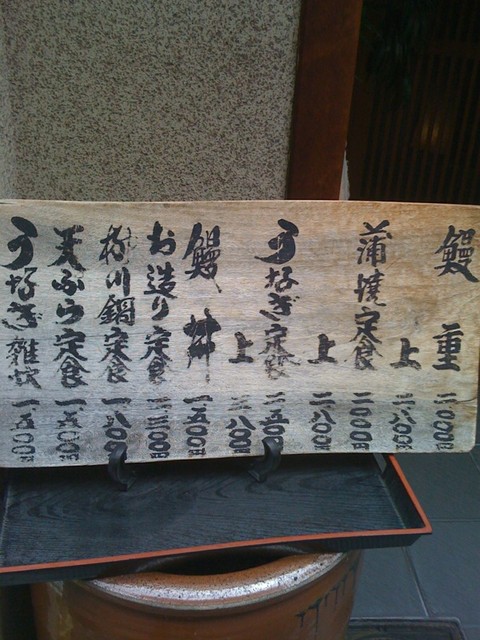 鰻重 二、〇〇〇円
上 二、八〇〇円
蒲焼定食 二、〇〇〇円
上 二、八〇〇円
うなぎ定食 二、五〇〇円
上 三、八〇〇円
鰻丼 一、五〇〇円
お造り定食 一、三〇〇円
柳川鍋定食 一、八〇〇円
天ぷら定食 一、五〇〇円
うなぎ雑炊 一、五〇〇円